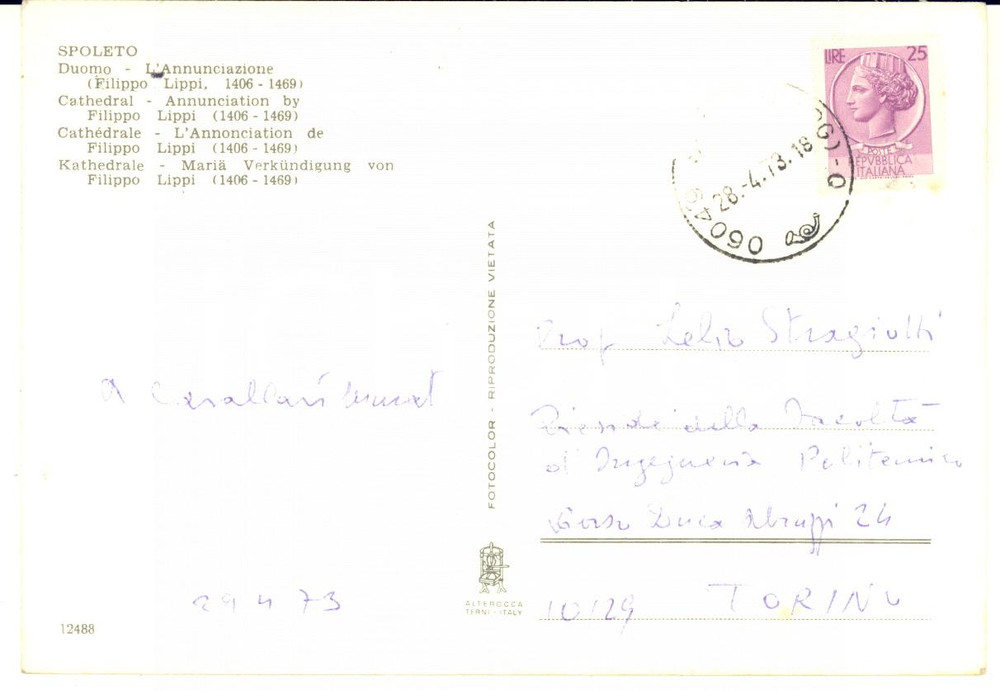 SPOLETO
Duomo - L'Annunciazione
(Filippo Lippi, 1406 - 1469)
Cathedral - Annunciation by
Filippo Lippi (1406 - 1469)
Cathédrale - L'Annonciation de
Filippo Lippi (1406 - 1469)
Kathedrale - Mariä Verkündigung von
Filippo Lippi (1406 - 1469)
LIRE 25
POSTE
REPVBBLICA
ITALIANA
28.-4.73.18
FOTOCOLOR - RIPRODUZIONE VIETATA
Prof Lelio Stragiotti
A Cavallari Murat
Preside della Facoltà
d'Ingegneria Politecnico
Corso Duca Abruzzi 24
29 4 73
10129 TORINO
ALTEROCCA
TERNI - ITALY
12488